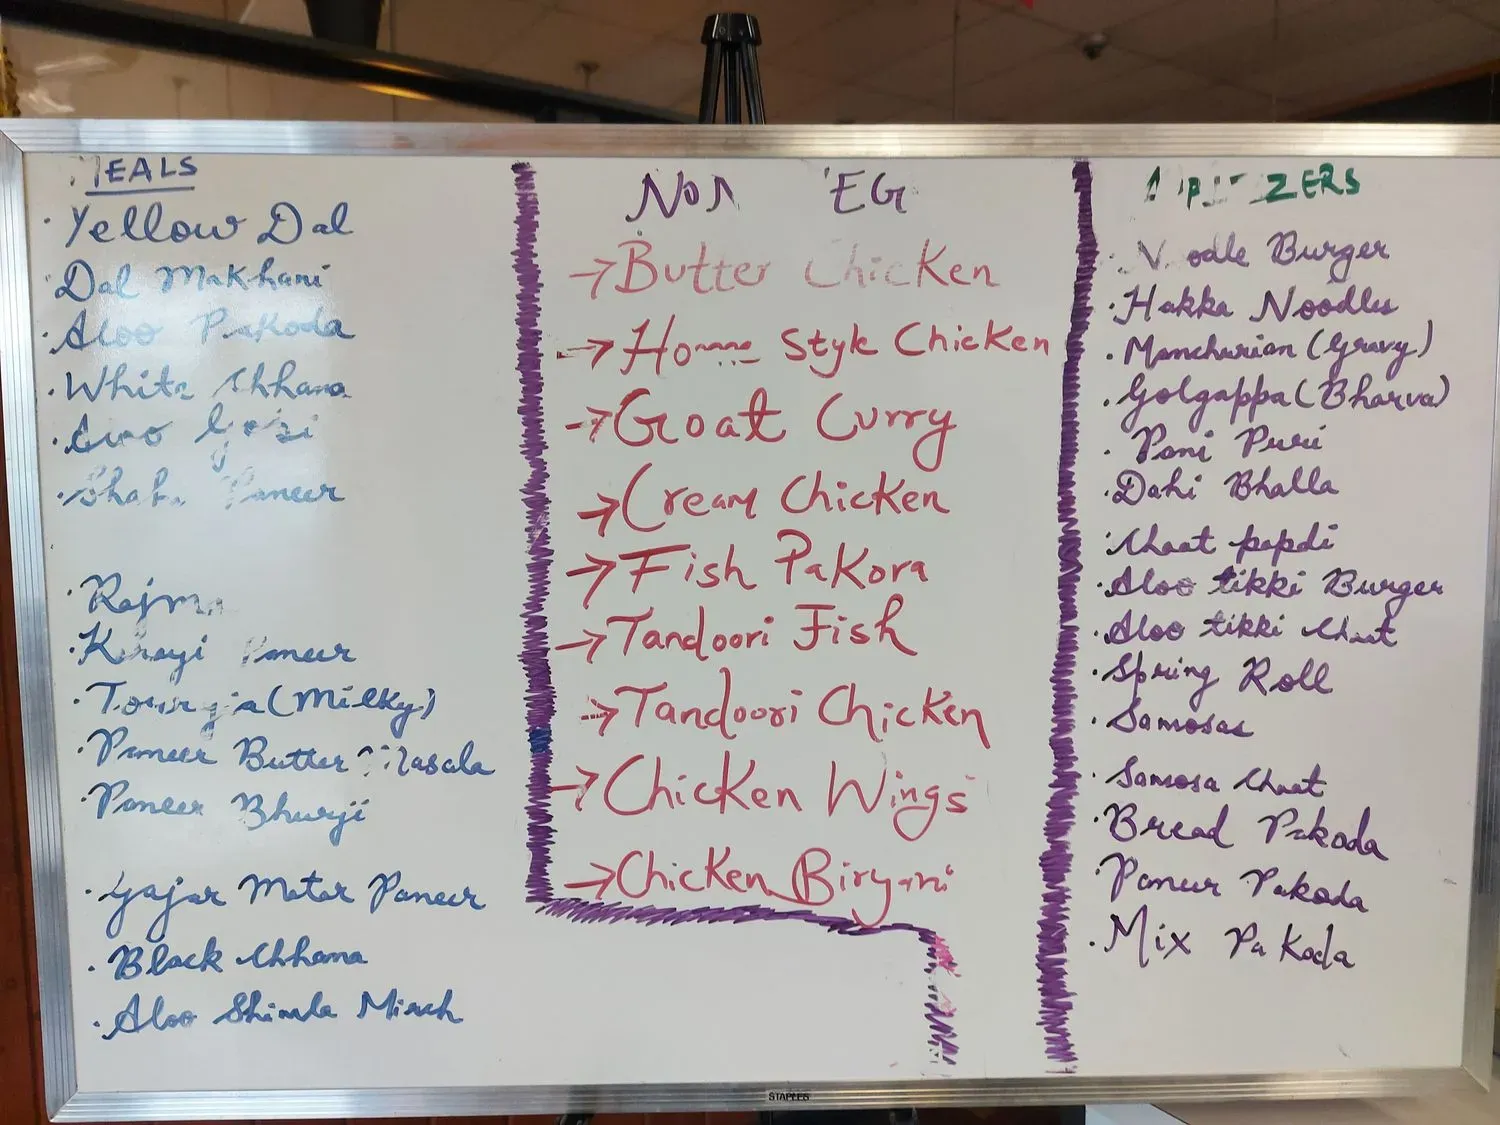 MEALS
· Yellow Dal
· Dal Makhani
· Aloo Pakoda
· White Chhana
· Aloo Gobi
· Shahi Paneer
· Rajma
· Karayi Paneer
· (Milky)
· Paneer Butter Masala
· Paneer Bhurji
· Gajar Matar Paneer
· Black Chhana
· Aloo Shimla Mirch
NON VEG
→ Butter Chicken
→ Home Style Chicken
→ Goat Curry
→ Cream Chicken
→ Fish Pakora
→ Tandoori Fish
→ Tandoori Chicken
→ Chicken Wings
→ Chicken Biryani
APPETIZERS
· Noodle Burger
· Hakka Noodles
· Manchurian (Gravy)
· Golgappa (Bharva)
· Pani Puri
· Dahi Bhalla
· Chaat papdi
· Aloo tikki Burger
· Aloo tikki Chaat
· Spring Roll
· Samosas
· Samosa Chaat
· Bread Pakoda
· Paneer Pakoda
· Mix Pakoda
STAPLES